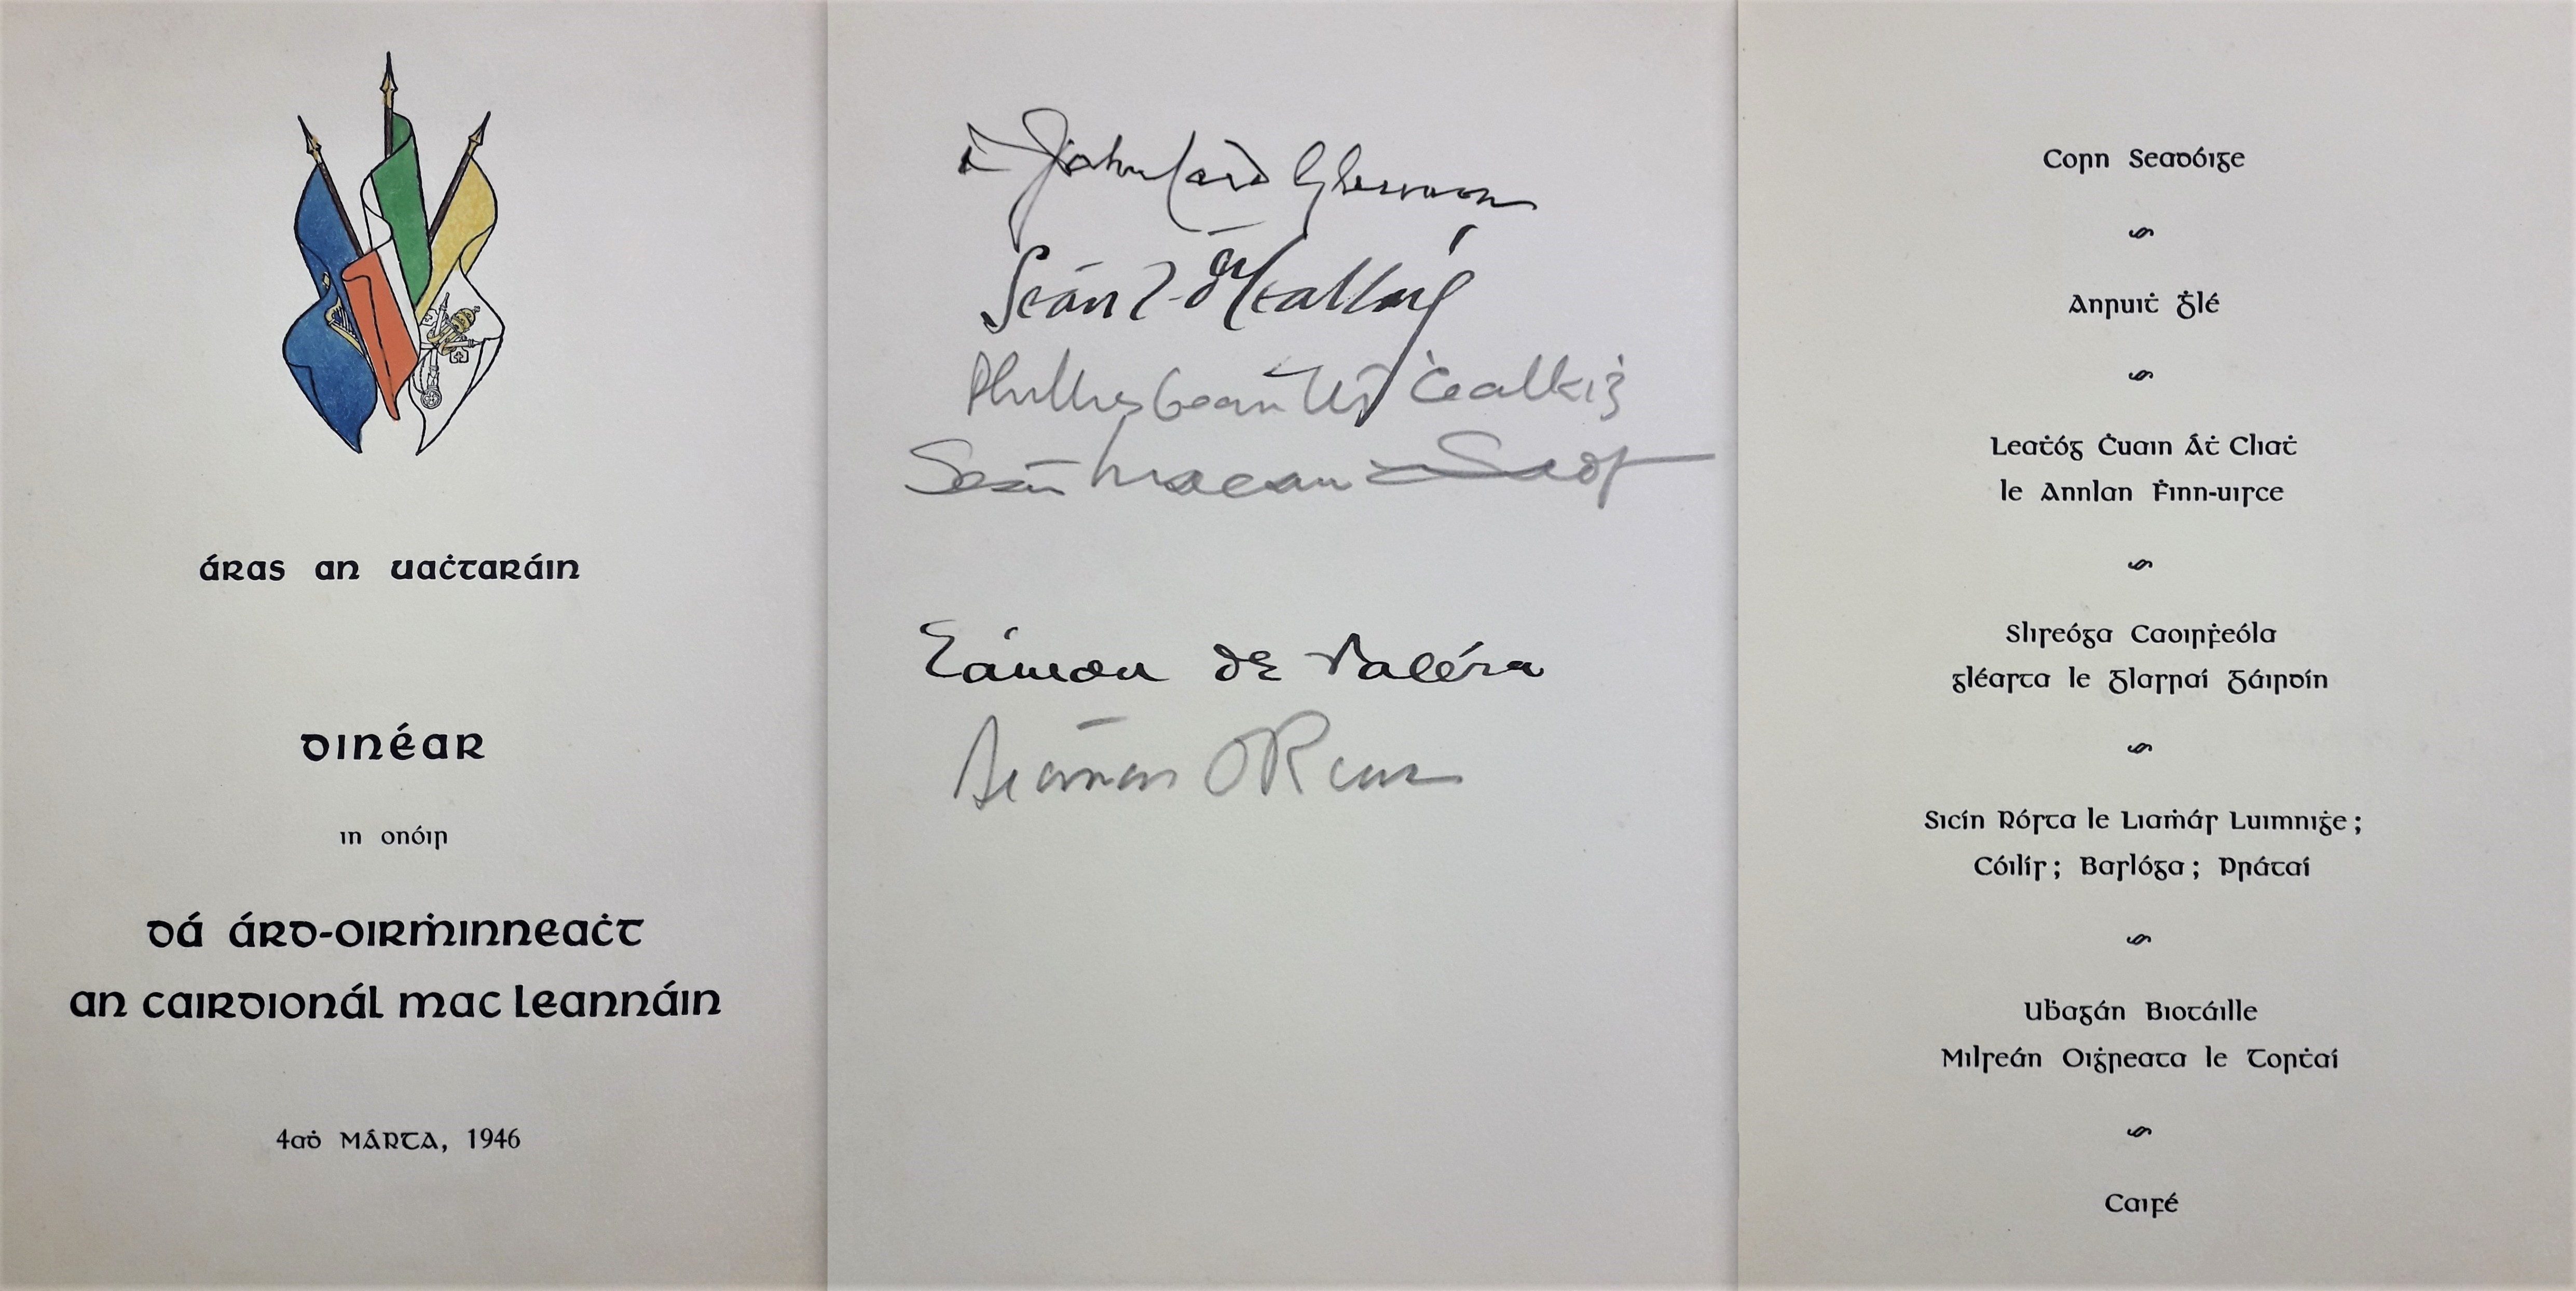 áras an uaċtaráin
dinéar
in onóir
dá árd-oirṁinneaċt
an cairdionál mac leannáin
4aḋ MÁRTA, 1946
John Card Glennon
Seán T. Ó Ceallaiġ
Phyllis bean Uí Ċeallaiġ
Seán Mac an
Éamon de Valéra
Séamas
Corn Seadóige
Anruiṫ Glé
Leaṫóg Ċuain Áṫ Cliaṫ
le Annlan Ḟinn-uisce
Sliseóga Caoirḟeóla
gléasta le Glasraí Gáirdín
Sicín Rósta le Liaṁás Luimniġe;
Cóilís; Baslóga; Prátaí
Uḃagán Biotáille
Milseán Oiġreata le Torṫaí
Caifé